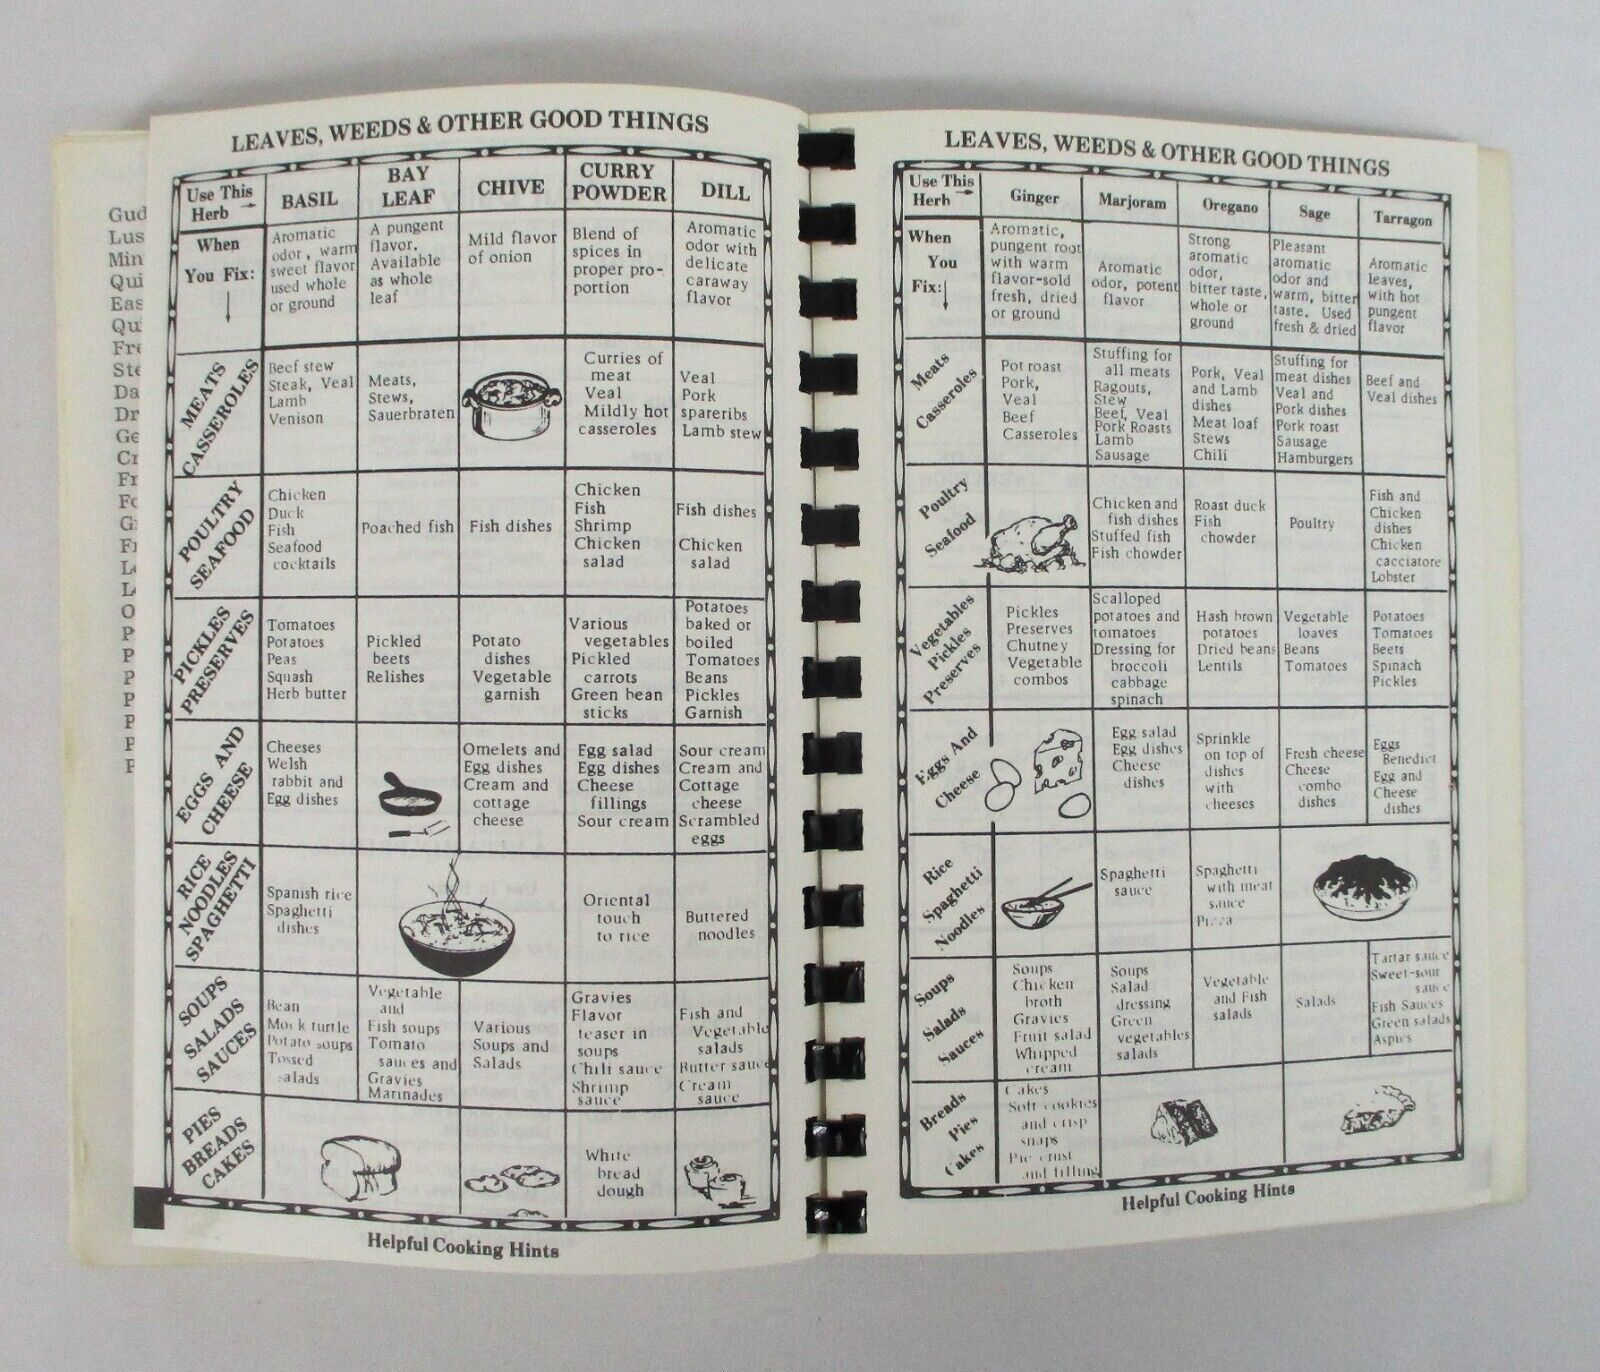 Gud
Lus
Min
Qui
Eas
Qu
Fre
Ste
Da
Dr
Ge
Cr
Fr
Fo
Gi
Fr
Le
Le
O
P
P
P
P
P
P
P
LEAVES, WEEDS & OTHER GOOD THINGS
Use This
Herb →
BASIL
BAY
LEAF
CHIVE
CURRY
POWDER
DILL
When
You Fix:
Aromatic
odor, warm
sweet flavor
used whole
or ground
A pungent
flavor.
Available
as whole
leaf
Mild flavor
of onion
Blend of
spices in
proper pro-
portion
Aromatic
odor with
delicate
caraway
flavor
MEATS
CASSEROLES
Beef stew
Steak, Veal
Lamb
Venison
Meats,
Stews,
Sauerbraten
Curries of
meat
Veal
Mildly hot
casseroles
Veal
Pork
spareribs
Lamb stew
POULTRY
SEAFOOD
Chicken
Duck
Fish
Seafood
cocktails
Poached fish
Fish dishes
Chicken
Fish
Shrimp
Chicken
salad
Fish dishes
Chicken
salad
PICKLES
PRESERVES
Tomatoes
Potatoes
Peas
Squash
Herb butter
Pickled
beets
Relishes
Potato
dishes
Vegetable
garnish
Various
vegetables
Pickled
carrots
Green bean
sticks
Potatoes
baked or
boiled
Tomatoes
Beans
Pickles
Garnish
EGGS AND
CHEESE
Cheeses
Welsh
rabbit and
Egg dishes
Omelets and
Egg dishes
Cream and
cottage
cheese
Egg salad
Egg dishes
Cheese
fillings
Sour cream
Sour cream
Cream and
Cottage
cheese
Scrambled
eggs
RICE
NOODLES
SPAGHETTI
Spanish rice
Spaghetti
dishes
Oriental
touch
to rice
Buttered
noodles
SOUPS
SALADS
SAUCES
Bean
Mock turtle
Potato soups
Tossed
salads
Vegetable
and
Fish soups
Tomato
sauces and
Gravies
Marinades
Various
Soups and
Salads
Gravies
Flavor
teaser in
soups
Chili sauce
Shrimp
sauce
Fish and
Vegetable
salads
Butter sauce
Cream
sauce
PIES
BREADS
CAKES
White
bread
dough
Helpful Cooking Hints
LEAVES, WEEDS & OTHER GOOD THINGS
Use This
Herb →
Ginger
Marjoram
Oregano
Sage
Tarragon
When
You
Fix:
Aromatic,
pungent root
with warm
flavor-sold
fresh, dried
or ground
Aromatic
odor, potent
flavor
Strong
aromatic
odor,
bitter taste,
whole or
ground
Pleasant
aromatic
odor and
warm, bitter
taste. Used
fresh & dried
Aromatic
leaves,
with hot
pungent
flavor
Meats
Casseroles
Pot roast
Pork,
Veal
Beef
Casseroles
Stuffing for
all meats
Ragouts,
Stew
Beef, Veal
Pork Roasts
Lamb
Sausage
Pork, Veal
and Lamb
dishes
Meat loaf
Stews
Chili
Stuffing for
meat dishes
Veal and
Pork dishes
Pork roast
Sausage
Hamburgers
Beef and
Veal dishes
Poultry
Seafood
Chicken and
fish dishes
Stuffed fish
Fish chowder
Roast duck
Fish
chowder
Poultry
Fish and
Chicken
dishes
Chicken
cacciatore
Lobster
Vegetables
Pickles
Preserves
Pickles
Preserves
Chutney
Vegetable
combos
Scalloped
potatoes and
tomatoes
Dressing for
broccoli
cabbage
spinach
Hash brown
potatoes
Dried beans
Lentils
Vegetable
loaves
Beans
Tomatoes
Potatoes
Tomatoes
Beets
Spinach
Pickles
Eggs And
Cheese
Egg salad
Egg dishes
Cheese
dishes
Sprinkle
on top of
dishes
with
cheeses
Fresh cheese
Cheese
combo
dishes
Eggs
Benedict
Egg and
Cheese
dishes
Rice
Spaghetti
Noodles
Spaghetti
sauce
Spaghetti
with meat
sauce
Pizza
Soups
Salads
Sauces
Soups
Chicken
broth
Gravies
Fruit salad
Whipped
cream
Soups
Salad
dressing
Green
vegetables
salads
Vegetable
and Fish
salads
Salads
Tartar sauce
Sweet-sour
sauce
Fish Sauces
Green salads
Aspics
Breads
Pies
Cakes
Cakes
Soft cookies
and crisp
snaps
Pie crust
and filling
Helpful Cooking Hints